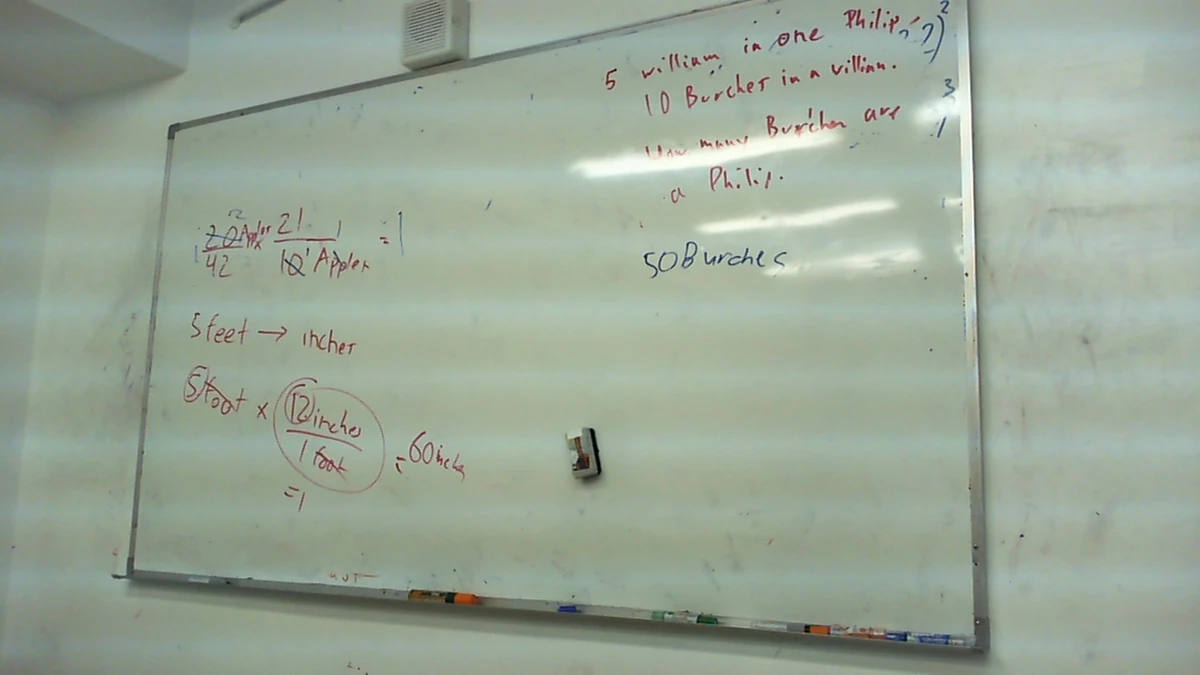 5 william in one Philip
10 Burches in a villian.
How many Burches are
a Philip.
50 Burches
20 Apples x 21 = 1
42 10 Apples
5 feet → inches
5 foot x 12 inches = 60 inches
1 foot
=1
2
3
1